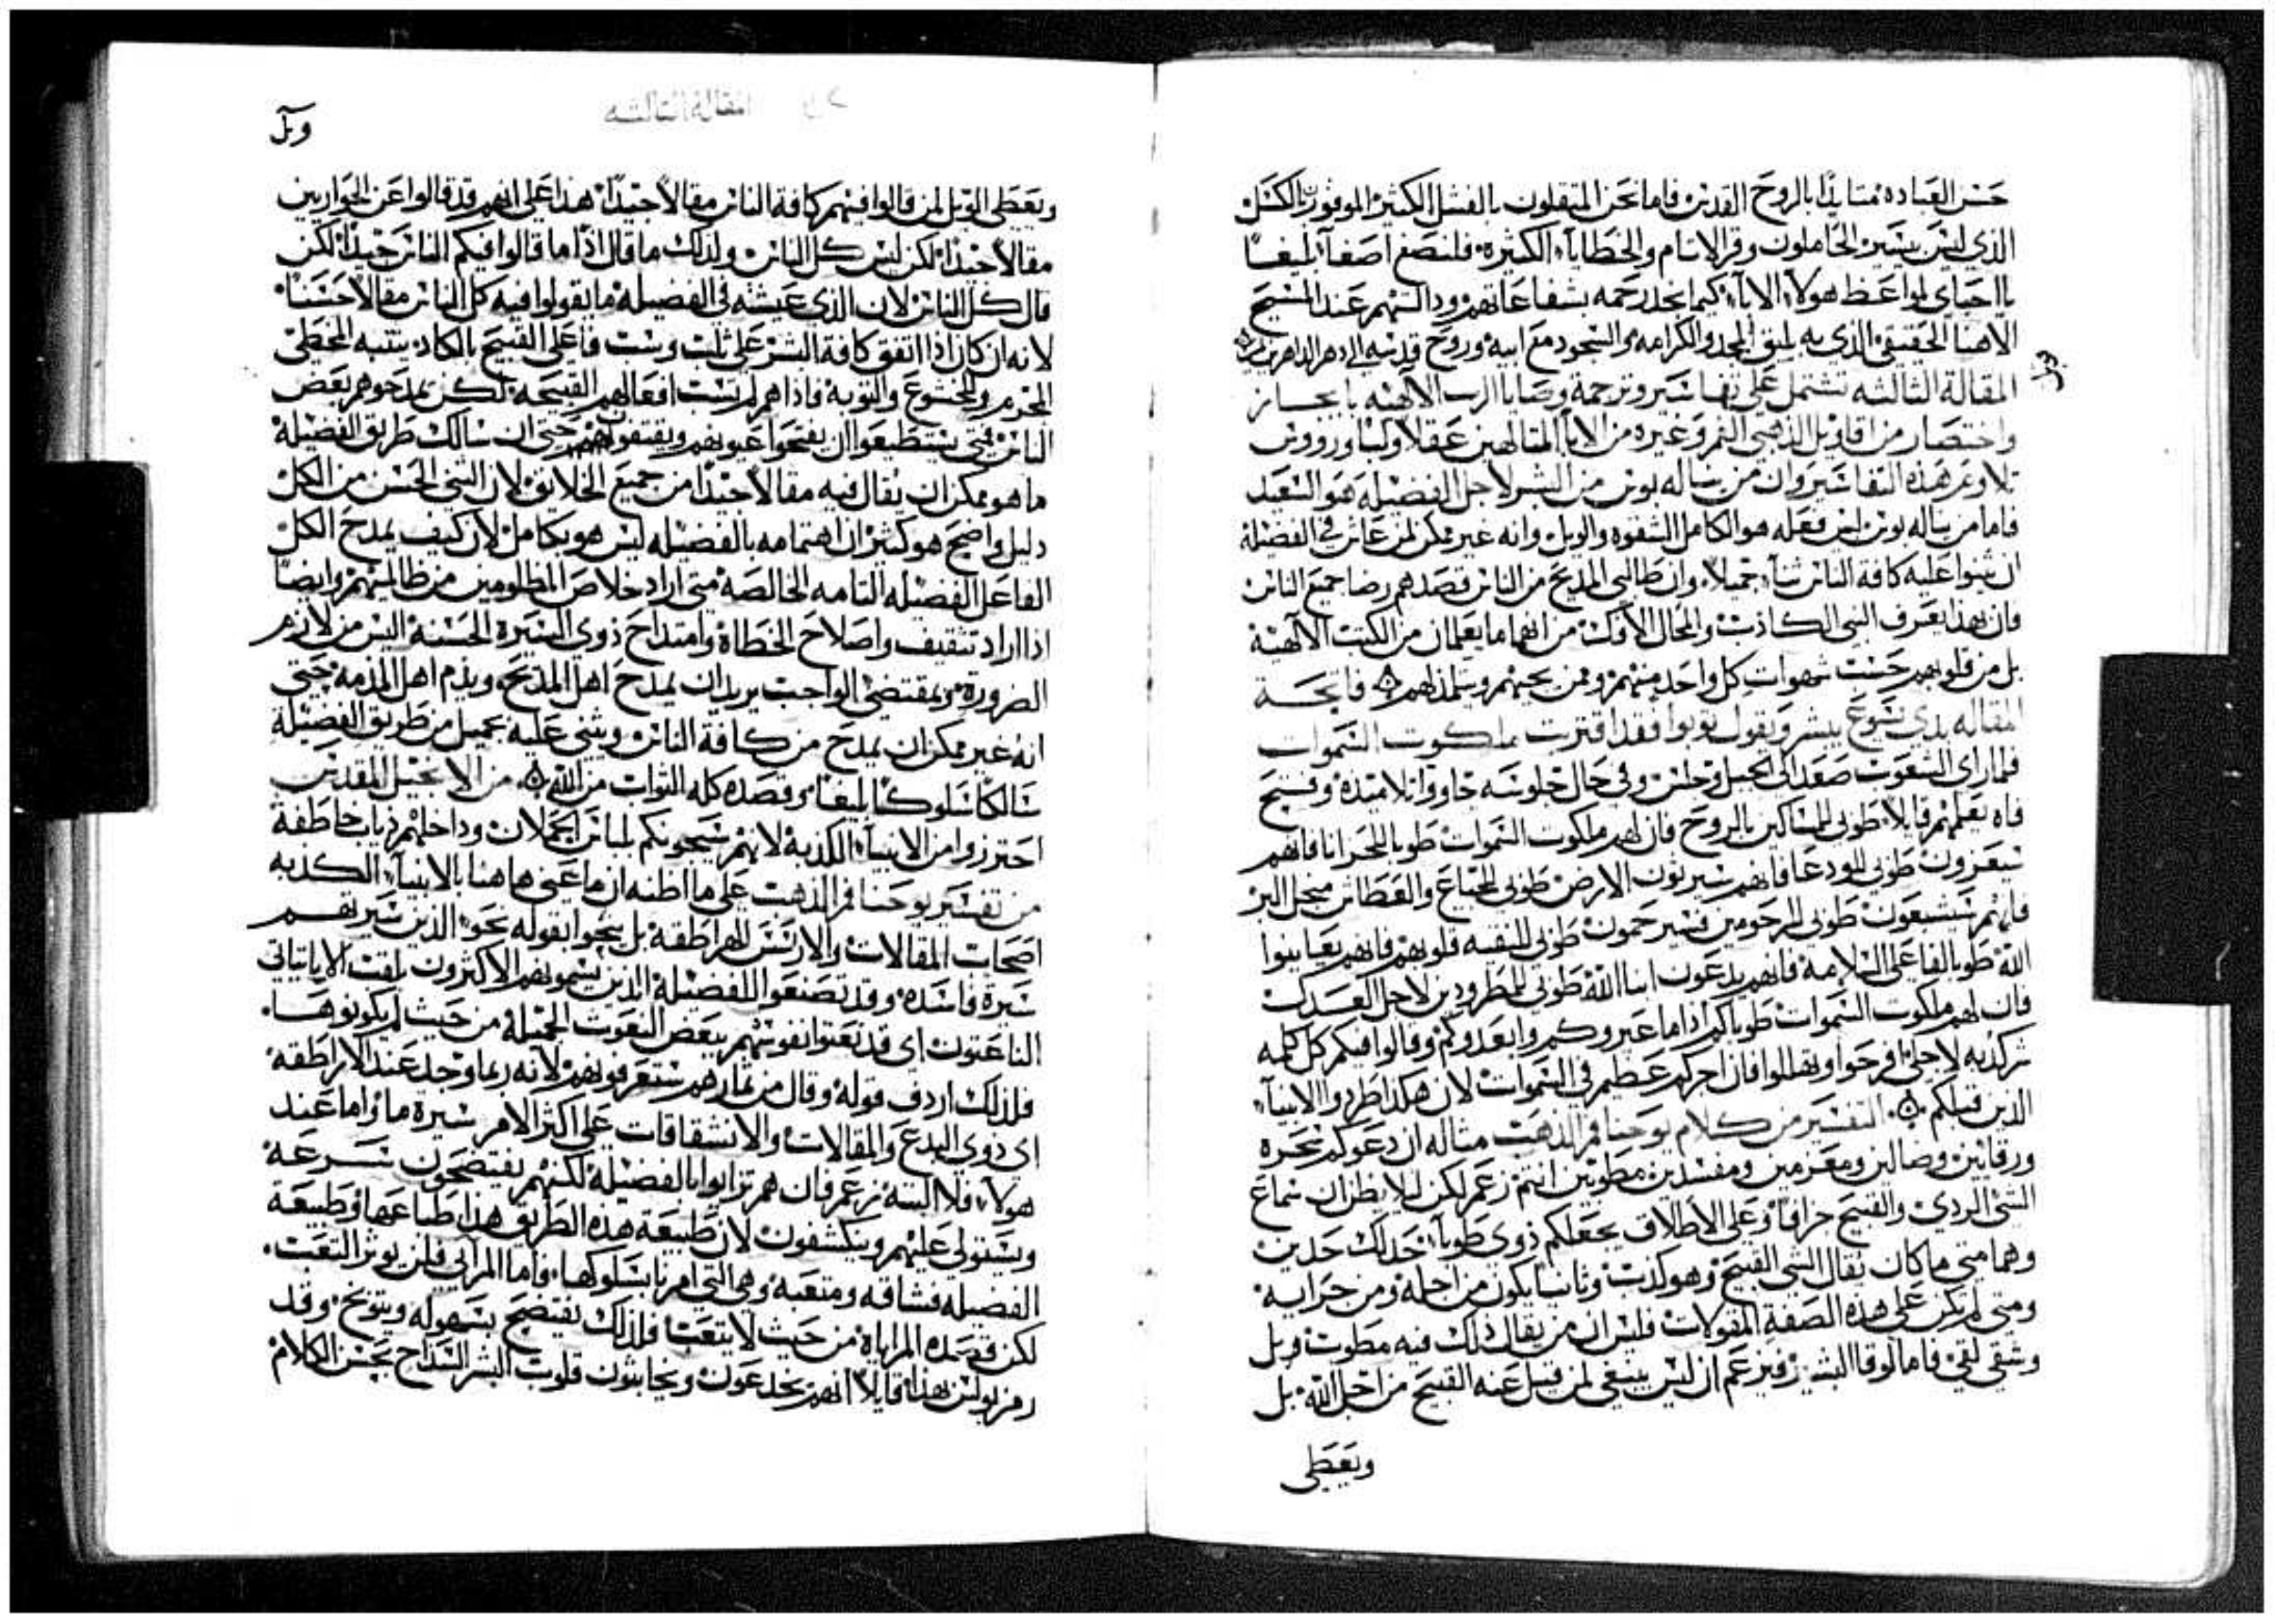 حسن العباده متايدًا بالروح القدس فاما نحن المتقلون بالفشل الكثير الموفورين الكسل
الذي ليس بيسير الحاملون وقر الاثام والخطايا الكثيره فلنصغ اصغآ بليغًا
يا احباي لمواعظ هولآ الابآ كيما نجد رحمه بشفاعاتهم ودالتهم عند المسيح
الاهنا الحقيقي الذي به يليق المجد والكرامه والسجود مع ابيه وروح قدسه الى دهر الداهرين
المقالة الثالثه تشتمل على تفاسير وترجمة وصايا الرب الآلهيه بايجاز
واختصار من اقاويل الذهبي الفم وغيره من الابآ المتالهين عقلاً ولبًا ورووس
تلاوة هذه التفاسير وان من يناله بوس من البشر لاجل الفضيله هو السعيد
فاما من يناله بوس لبس فعله هو الكامل الشقوه والويل وانه غير ممكن لمن عاش في الفضيلة
ان يثنوا عليه كافة الناس ثنآ جميلاً وان طالبي المديح من الناس قصدهم رضا جميع الناس
فان بهذا يعرف النبي الكاذب والمحال الافك من انهما ما يعلمان من الكتب الآلهية
بل من قلوبهم حسب شهوات كل واحد منهم وممن يحبهم ويتلمذ لهم فاتحة
المقاله بدى يسوع يبشر ويقول توبوا فقد اقتربت ملكوت السموات
فلما راى الشعوب صعد الى الجبل وجلس وفي حال جلوسه جاووا تلاميذه وفتح
فاه يعلمهم قايلاً طوبى للمساكين بالروح فان لهم ملكوت السموات طوبا للحزانا فانهم
سيعزون طوبى للودعا فانهم سيرثون الارض طوبى للجياع والعطاش من اجل البر
فانهم سيشبعون طوبى للرحومين فسيرحمون طوبى للنقيه قلوبهم فانهم يعاينوا
الله طوبا لفاعلي السلامة فانهم يدعون ابنا الله طوبى للمطرودين لاجل العدل
فان لهم ملكوت السموات طوباكم اذا ما عيروكم وابعدوكم وقالوا فيكم كل كلمه
شر كذبه لاجلي افرحوا وتهللوا فان اجركم عظيم في السموات لان هكذا طردوا الانبيآ
الذين قبلكم التفسير من كلام يوحنا فم الذهب مثاله ان دعوكم سحره
ورقايين وضالين ومعزمين ومفسدين مطوبين انتم زعم لكن ليلا يظن ان سماع
الشي الردي والقبيح جزافًا وعلى الاطلاق يجعلكم ذوي طوبا حد لك حدين
وهما متى ما كان يقال الشي القبيح وهو كذب وثانيا يكون من اجله ومن جرايه
ومتى لم تكن على هذه الصفة المقولات فليس ان من يقال ذلك فيه مطوب وبل
وشقي لقي فاما لوقا البشير فيزعم ان ليس ينبغي لمن قيل عنه القبيح من اجل الله بل
ويعطى
المقالة الثالثه
ويعطى الويل لمن قالوا فيهم كافة الناس مقالاً جيدًا هذا على انهم قد قالوا عن الحواريين
مقالاً جيدًا لكن ليس كل الناس ولذلك ما قال اذا ما قالوا فيكم الناس جيدًا لكن
قال كل الناس لان الذي عيشته في الفضيله ما يقولوا فيه كل الناس مقالاً حسنًا
لانه ان كان اذا اتفق كافة البشر على ثلب وسب فاعلي القبيح بالكاد ينتبه المخطى
المجرم والخشوع والتوبه فاذا هم لم تسب افعالهم القبيحه لكن يمدحوهم بعض
الناس فمتى يستطيعوا ان يفتحوا عيونهم ويفتقون حتى ان سالك طريق الفضيلة
ما هو ممكن ان يقال فيه مقالاً جيدًا من جميع الخلايق لان الثنى الحسن من الكل
دليل واضح هو كثير ان اهتمامه بالفضيله ليس هو بكامل لان كيف يمدح الكل
الفاعل الفضيله التامه الخالصه متى اراد خلاص المظلومين من ظالميهم وايضًا
اذا اراد تثقيف واصلاح الخطاة وامتداح ذوي السيرة الحسنة اليس من لازم
الضرورة وبمقتضى الواجب يريد ان يمدح اهل المديح ويذم اهل المذمه حتى
انه غير ممكن ان يمدح من كافة الناس ويثني عليه بجميل من طريق الفضيلة
سالكًا سلوكًا بليغًا وقصده كله الثواب من الله من الانجيل المقدس
احترزوا من الانبيآ الكذبة لانهم سيجونكم بلباس الحملان وداخلهم ذياب خاطفة
من تفسير يوحنا فم الذهب على ما اظنه ان ما عنى هاهنا بالانبيآ الكذبه
اصحاب المقالات والاراتسس الهراطقه بل نحوا بقوله نحو الذين سيرتهم
سيرة فاسده وقد تصنعوا للفضيلة الذين يسمونهم الاكثرون بلقب الاباتياتي
الناعتون اي قد نعتوا نفوسهم ببعض النعوت الجميله من حيث لم يكونوها
فلذلك اردف قوله وقال من ثمارهم ستعرفونهم لانه ربما وجد عند الاراطقه
اي ذوي البدع والمقالات والانشقاقات على اكثر الامر سيرة ما واما عند
هولآ فلا البتة زعم فان هم تزايوا بالفضيلة لكنهم يفتضحون بسرعه
ويستولى عليهم وينكشفون لان طبيعة هذه الطريق هذا طباعها وطبيعة
الفضيله فشاقه ومتعبه وهي التي امرنا بسلوكها واما المرآي فلن يوثر التعب
لكن قصده المراياة من حيث لا يتعب فلذلك يفتضح بسهوله ويتوبخ وقد
رمز بولس بهذا قايلاً انهم يخدعون ويخابثون قلوب البشر السذاج بحسن الكلام